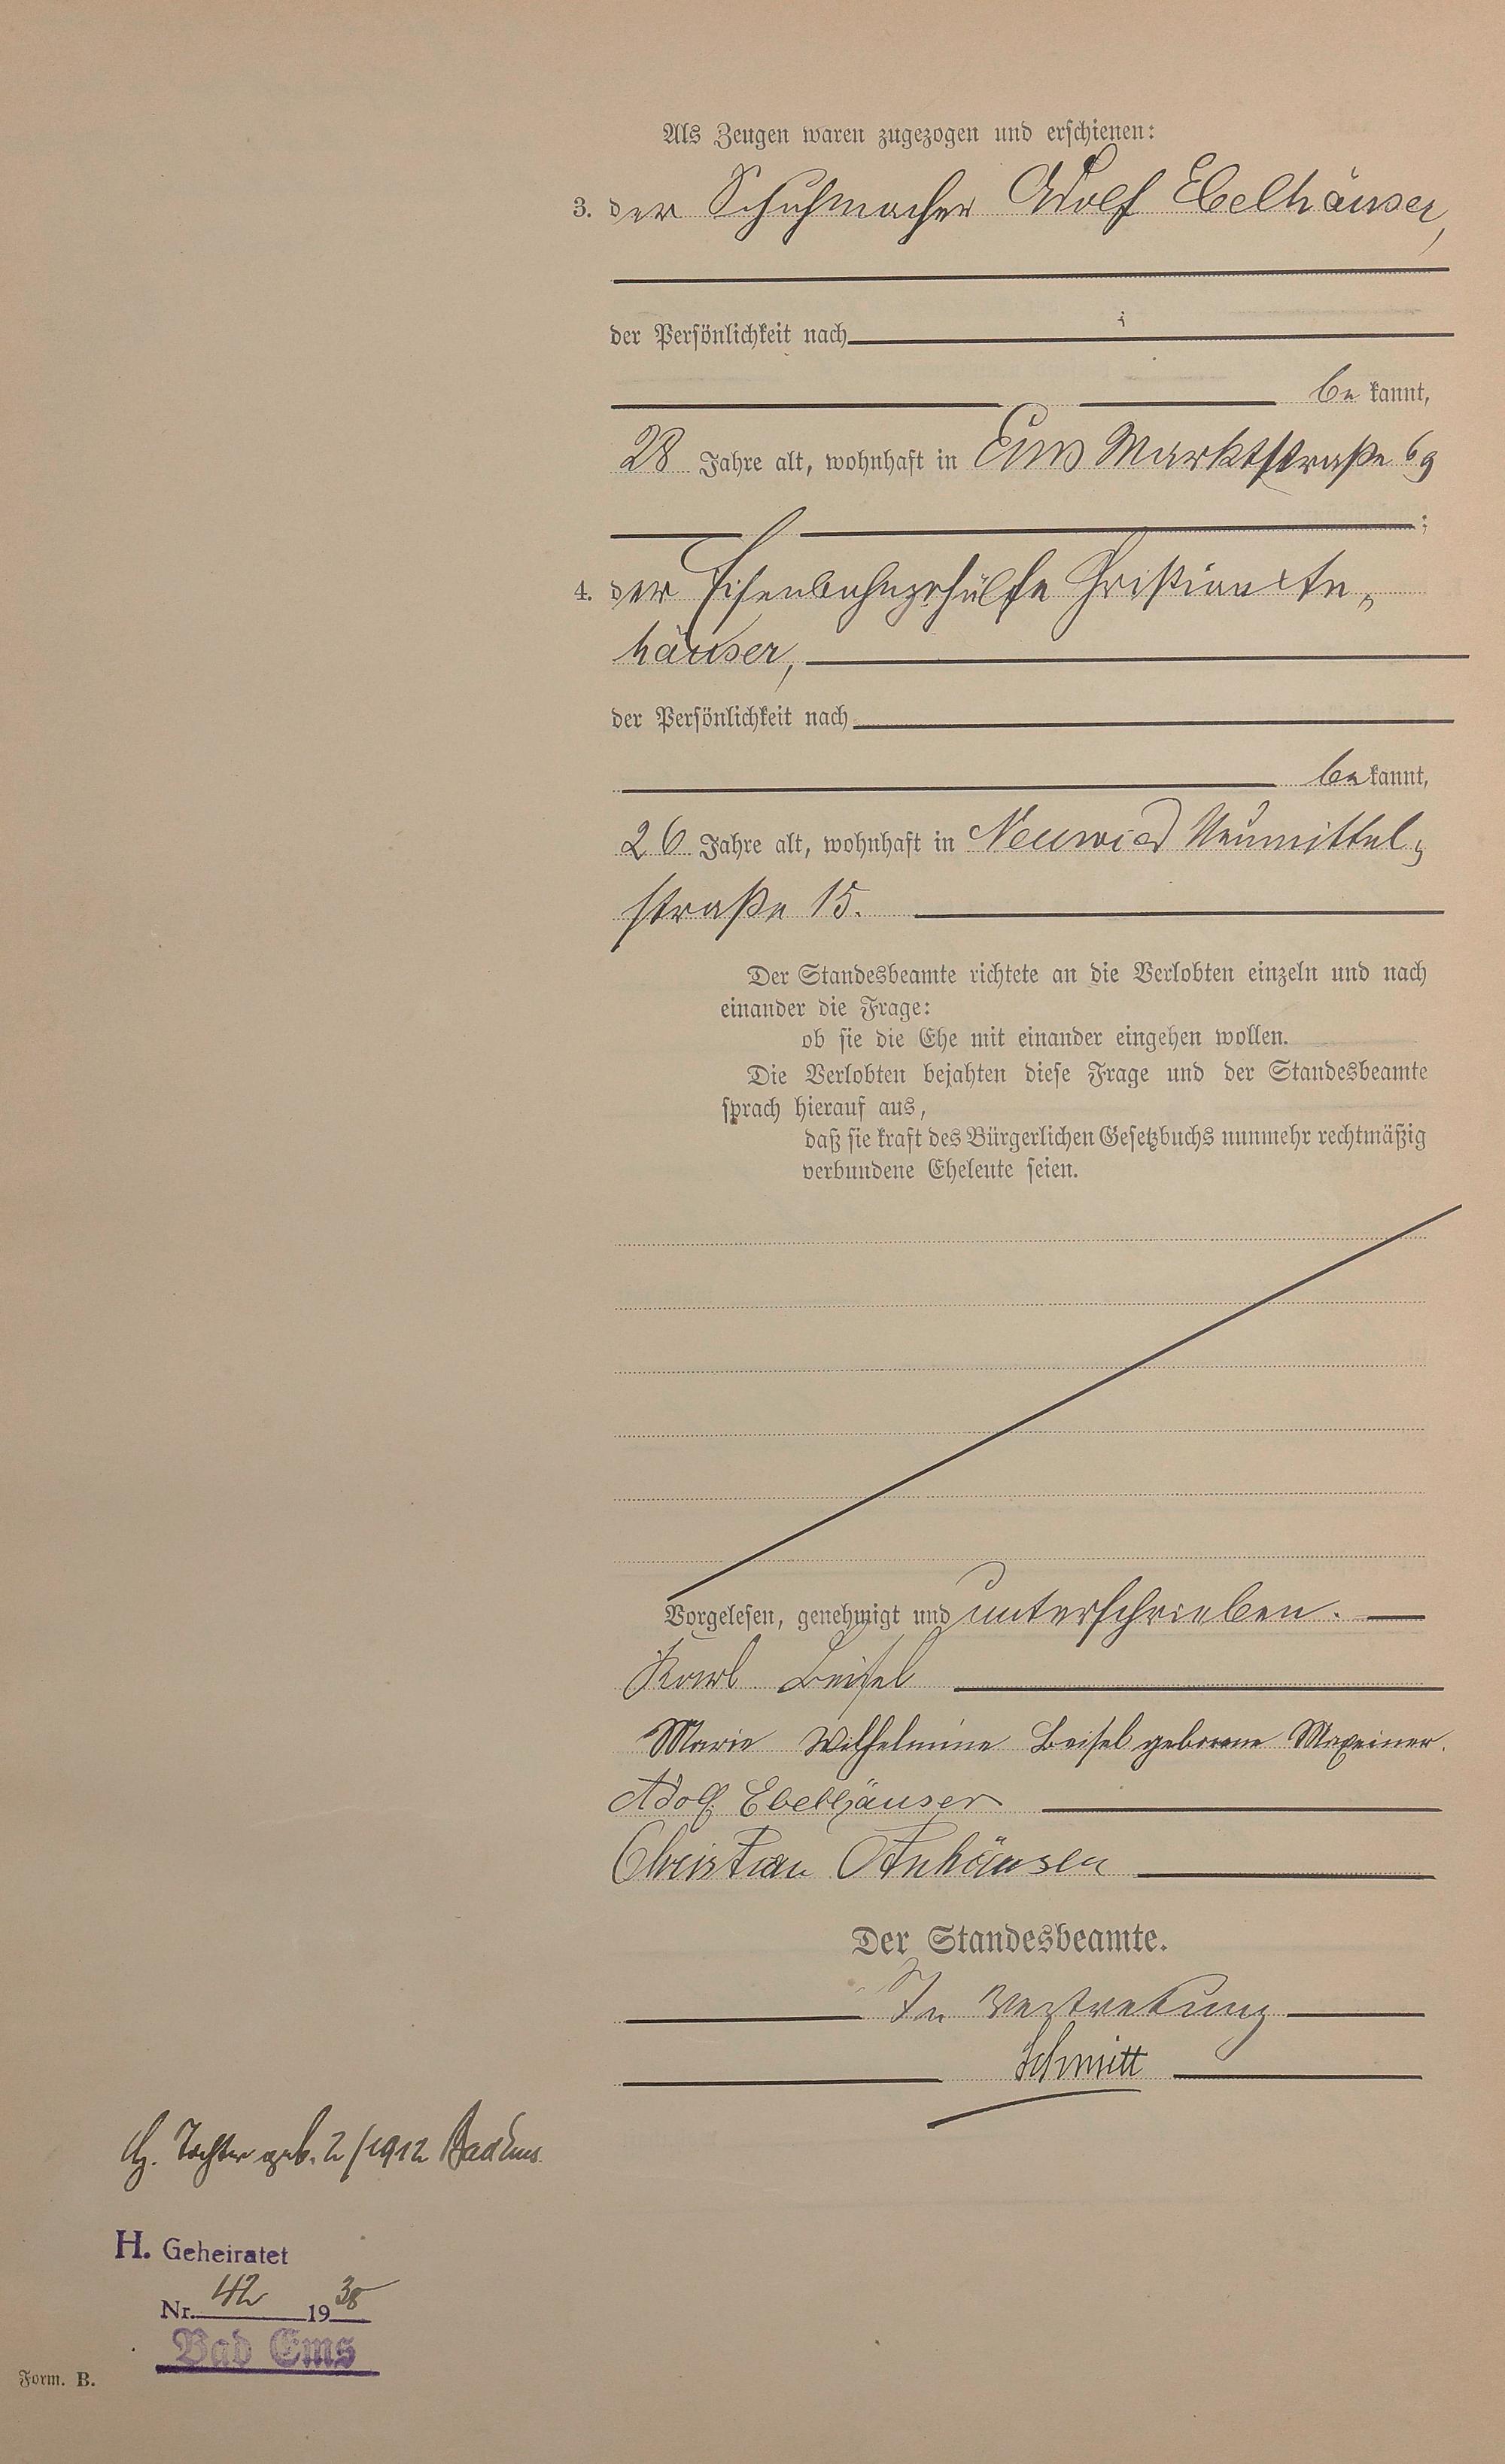 Als Zeugen waren zugezogen und erschienen:
3. der Schuhmacher Adolf Ebelhäuser,
der Persönlichkeit nach
be kannt,
28 Jahre alt, wohnhaft in Ems Marktstraße 69
;
4. der Eisenbahngehülfe Christian An-
häuser,
der Persönlichkeit nach
be kannt,
26 Jahre alt, wohnhaft in Neuwied Neumittel-
straße 15.
Der Standesbeamte richtete an die Verlobten einzeln und nach
einander die Frage:
ob sie die Ehe mit einander eingehen wollen.
Die Verlobten bejahten diese Frage und der Standesbeamte
sprach hierauf aus,
daß sie kraft des Bürgerlichen Gesetzbuchs nunmehr rechtmäßig
verbundene Eheleute seien.
Vorgelesen, genehmigt und unterschrieben.
Karl Beisel
Marie Wilhelmine Beisel geborene Maxeiner.
Adolf Ebelhäuser
Christian Anhäuser
Der Standesbeamte.
In Vertretung
Schmitt
Tochter geb. 2/1912 Bad Ems.
H. Geheiratet
Nr. 42 1938
Bad Ems
Form. B.